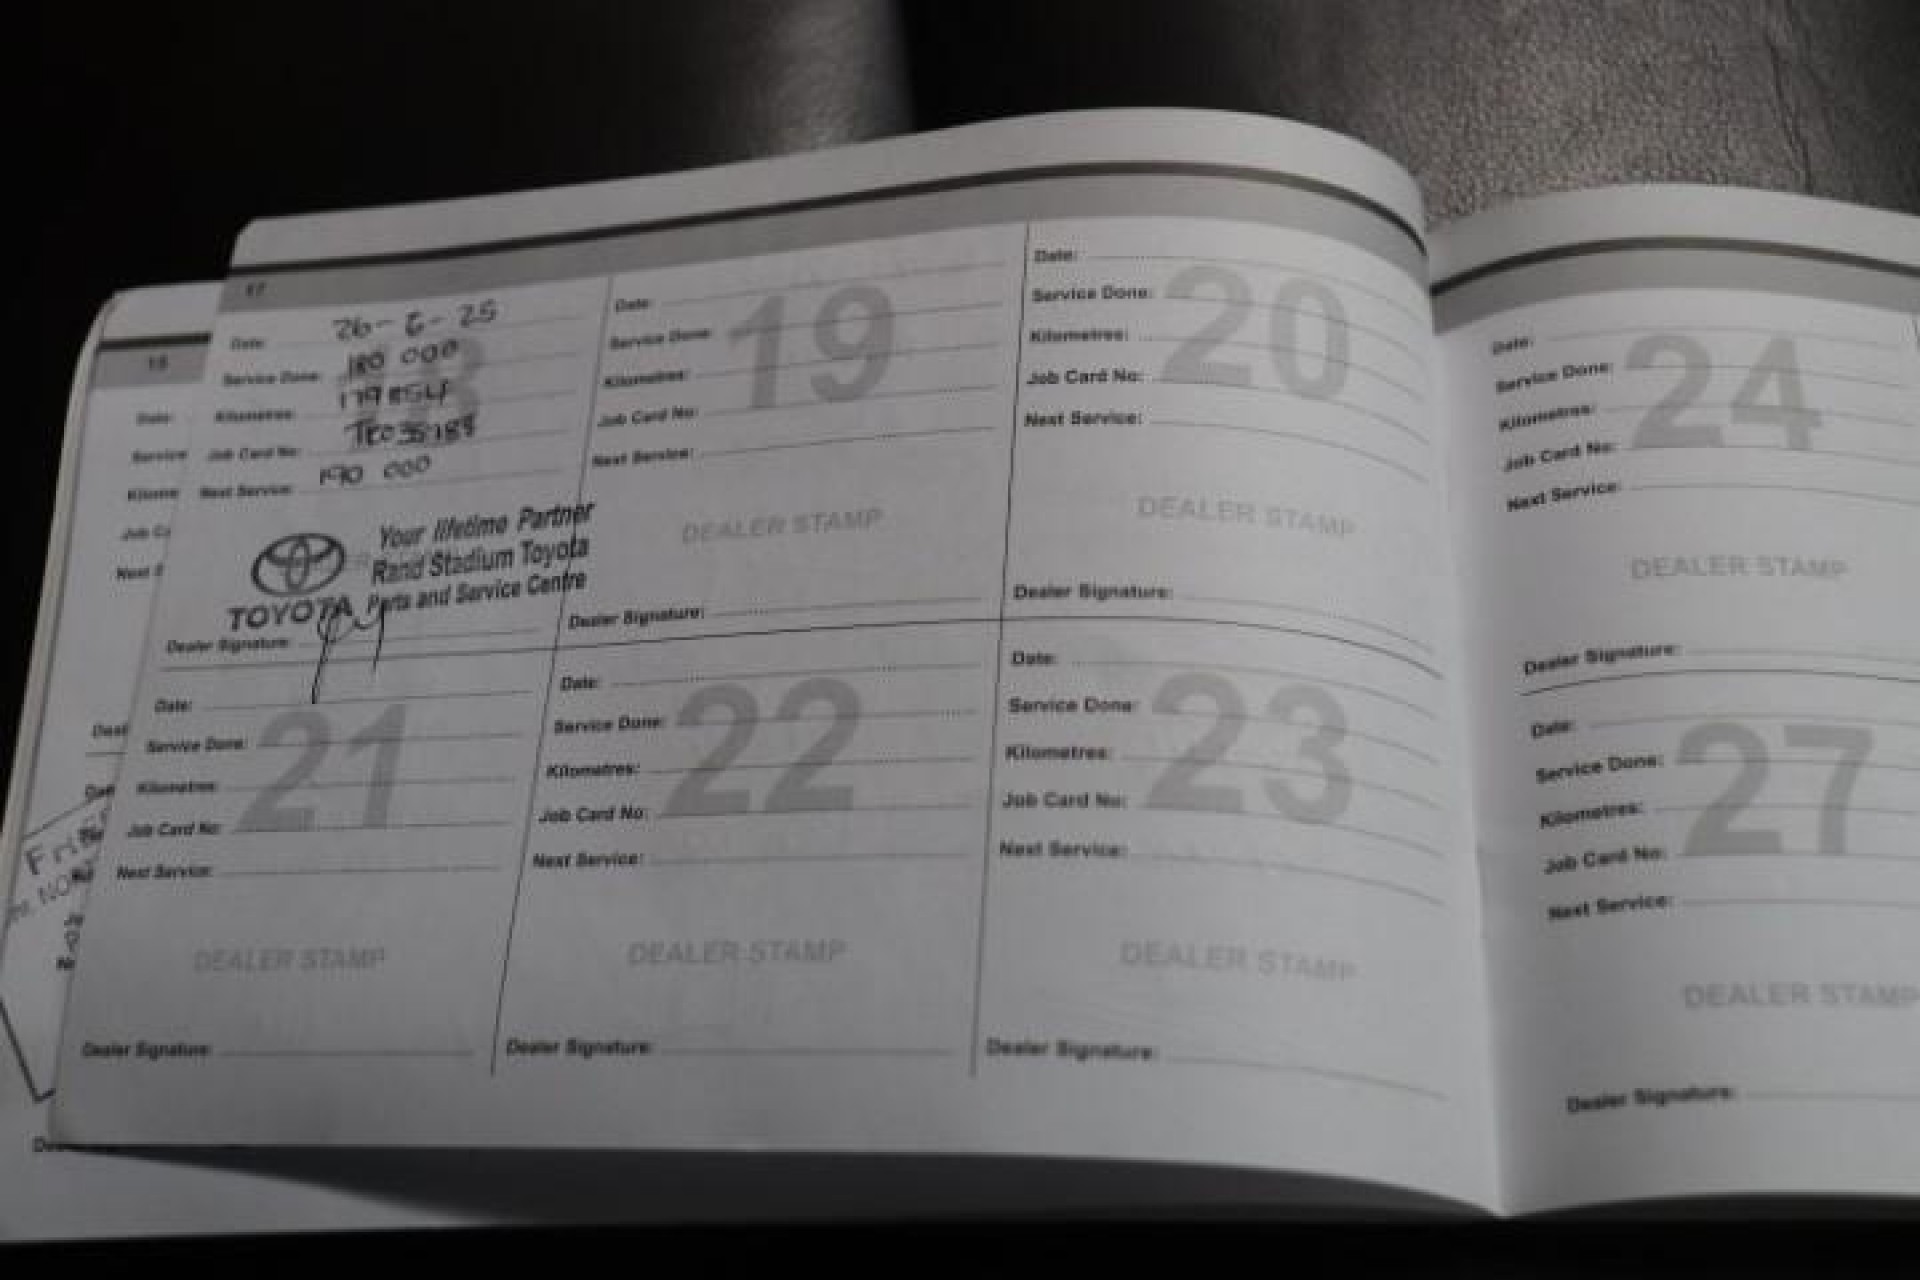 17
Date: 26-6-25
Service Done: 180 000
Kilometres: 179854
Job Card No:
Next Service: 190 000
Your lifetime Partner
Rand Stadium Toyota
Parts and Service Centre
TOYOTA
Dealer Signature:
19
Date:
Service Done:
Kilometres:
Job Card No:
Next Service:
DEALER STAMP
Dealer Signature:
20
Date:
Service Done:
Kilometres:
Job Card No:
Next Service:
DEALER STAMP
Dealer Signature:
21
Date:
Service Done:
Kilometres:
Job Card No:
Next Service:
DEALER STAMP
Dealer Signature:
22
Date:
Service Done:
Kilometres:
Job Card No:
Next Service:
DEALER STAMP
Dealer Signature:
23
Date:
Service Done:
Kilometres:
Job Card No:
Next Service:
DEALER STAMP
Dealer Signature:
24
Date:
Service Done:
Kilometres:
Job Card No:
Next Service:
DEALER STAMP
Dealer Signature:
27
Date:
Service Done:
Kilometres:
Job Card No:
Next Service:
DEALER STAMP
Dealer Signature:
Date:
Service